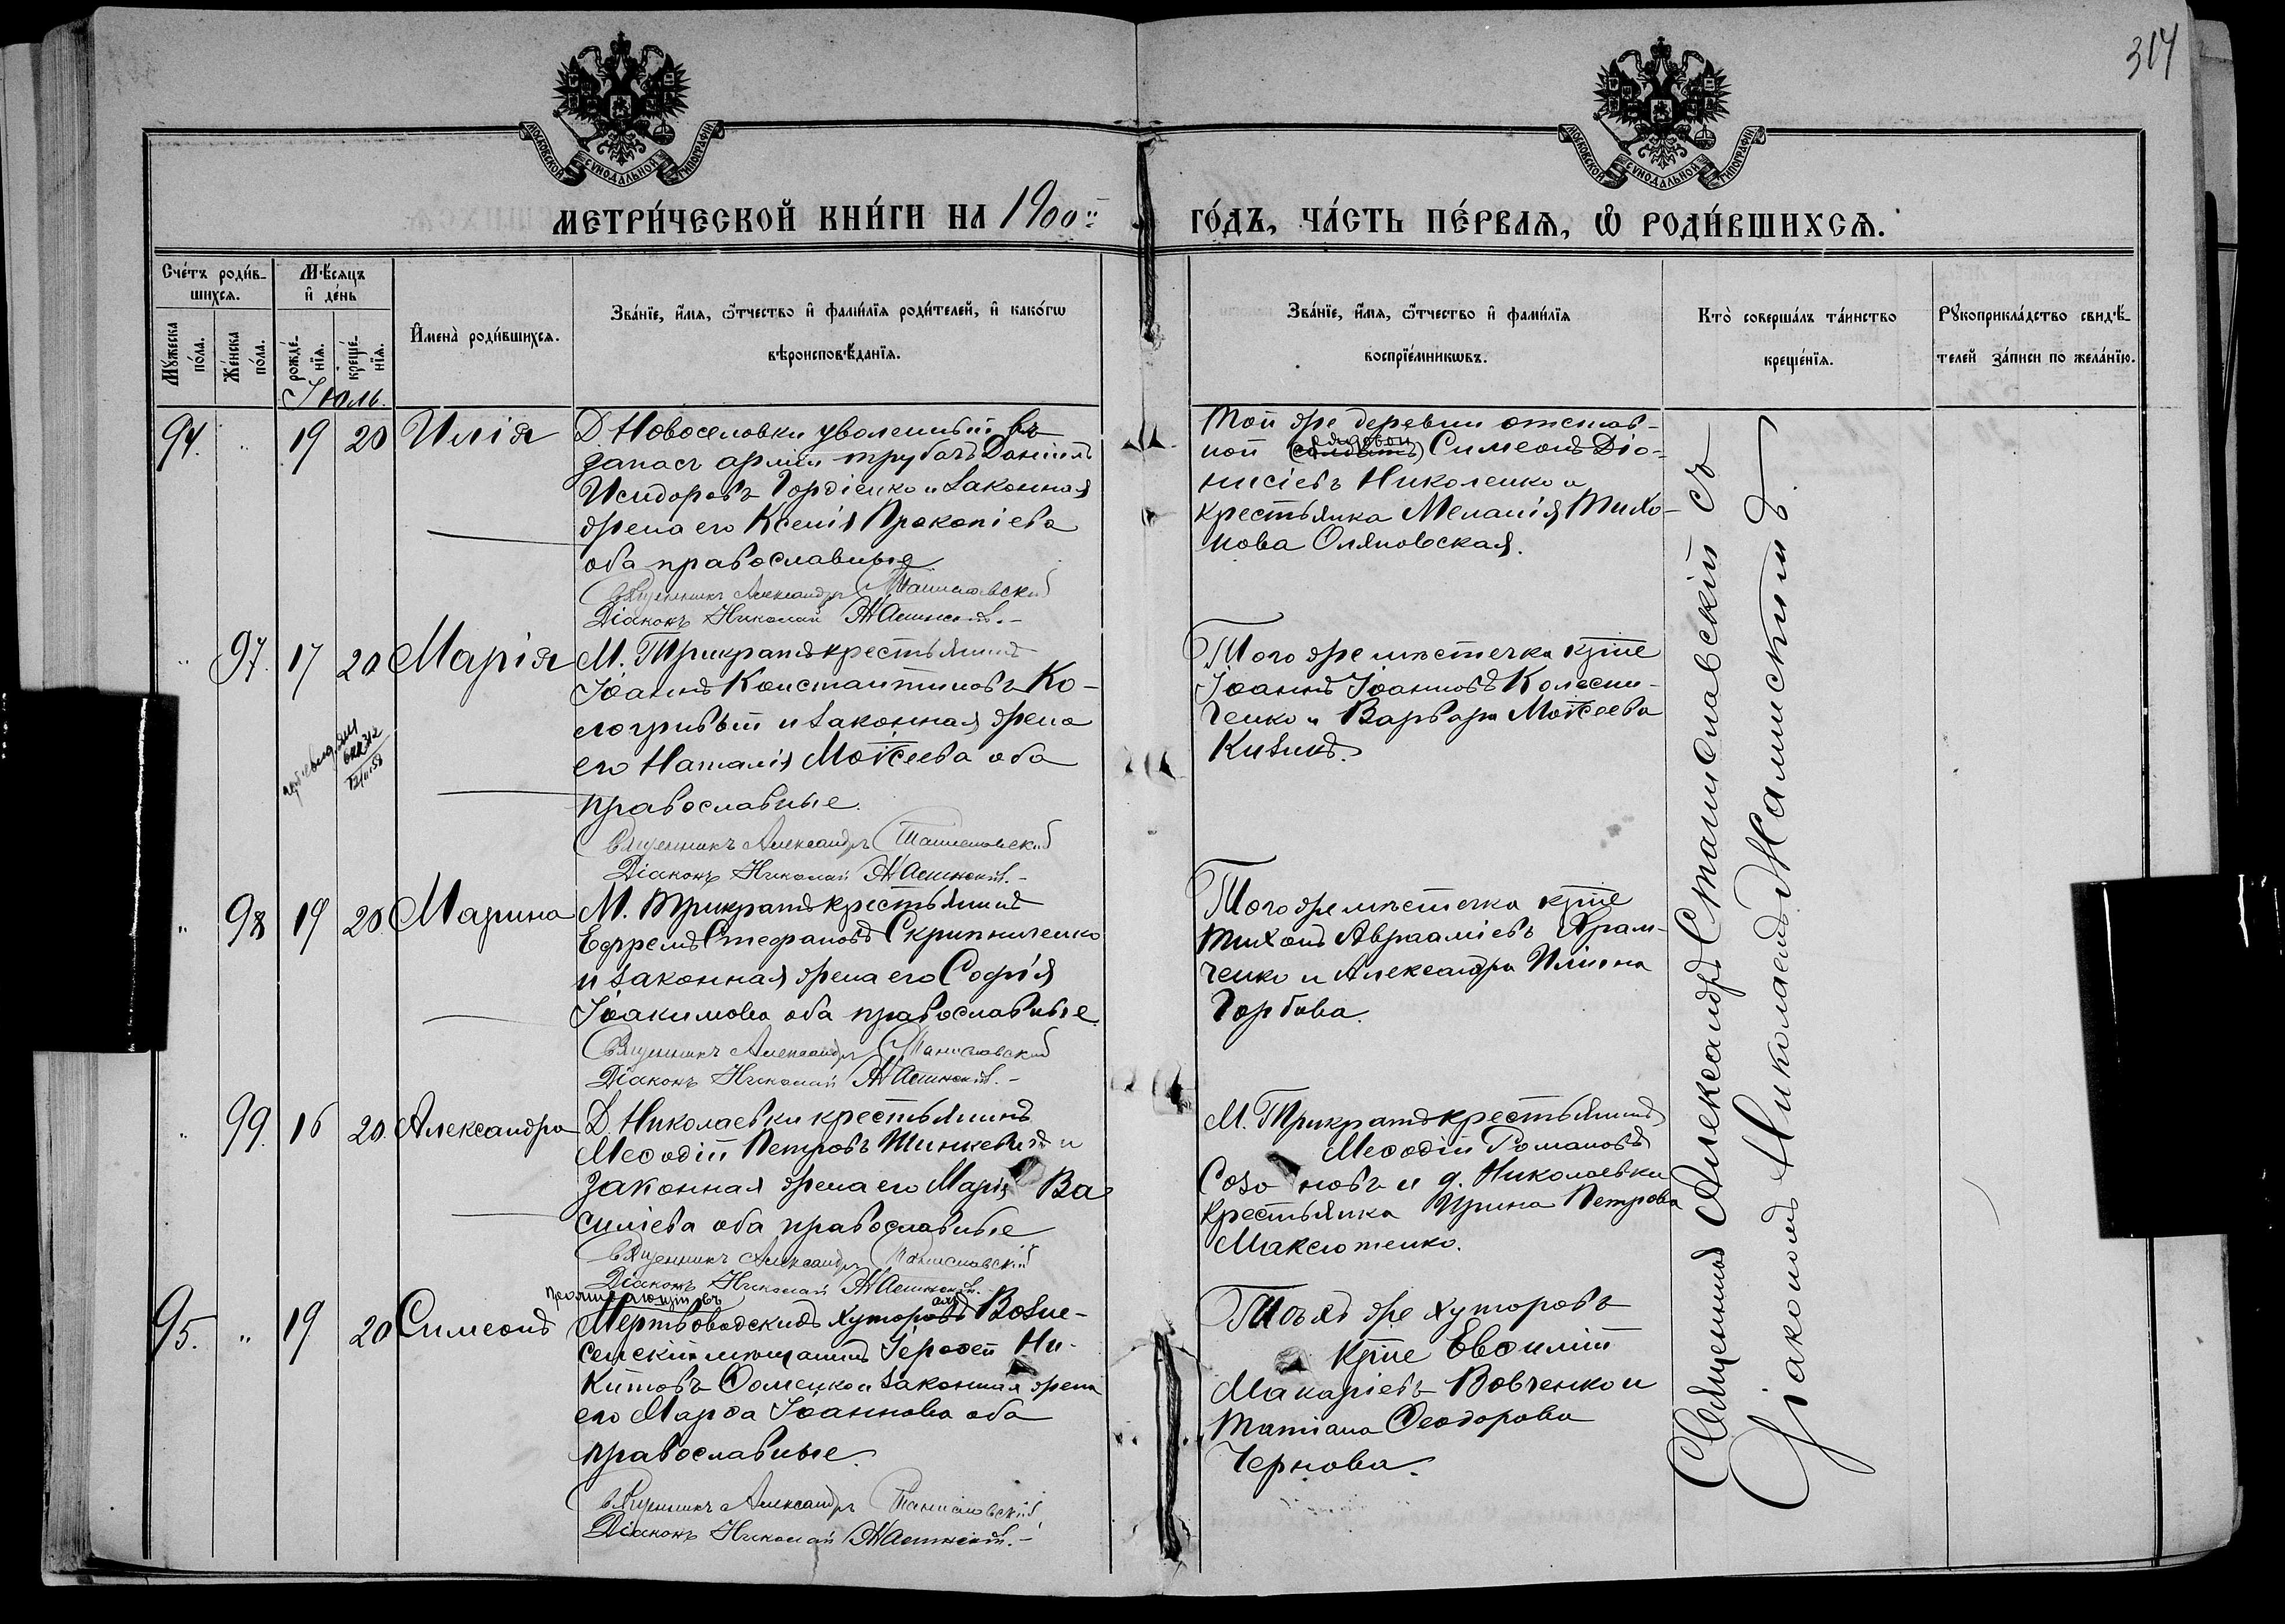 314
МОСКОВСКОЙ СѴНОДАЛЬНОЙ ТИПОГРАФІИ
МОСКОВСКОЙ СѴНОДАЛЬНОЙ ТИПОГРАФІИ
МЕТРИ́ЧЕСКОЙ КНИ́ГИ НА 1900й ГО́ДЪ, ЧА́СТЬ ПЕ́РВАѦ, Ѡ РОДИ́ВШИХСѦ.
Сче́тъ роди́в-
шихсѧ.
Мꙋ́жеска
по́ла.
Же́нска
по́ла.
Мѣ́сѧцъ
и де́нь
рожде́-
нїѧ.
креще́-
нїѧ.
Имена̀ роди́вшихсѧ.
Зва́нїе, и́мѧ, ѻ́тчество и фами́лїѧ роди́телей, и како́гѡ
вѣроисповѣ́данїѧ.
Зва́нїе, и́мѧ, ѻ́тчество и фами́лїѧ
воспрїе́мникѡвъ.
Кто̀ соверша́лъ та́инство
креще́нїѧ.
Рꙋкоприкла́дство свидѣ́-
телей за́писи по жела́нїю.
Іюль.
94. " 19 20 Илія
Д. Новоселовки уволенный въ
запасъ арміи трубачъ Даніилъ
Исидоровъ Гордіенко и законная
жена его Ксенія Прокопіева
оба православные
Священникъ Александръ Станиславскій
Діаконъ Николай
Той же деревни отстав-
ной (солдатъ) рядовой Симеонъ Діо-
нисіевъ Николенко и
крестьянка Меланія Тихо-
нова Оляновская.
" 97. 17 20 Марія
М. Трикратъ крестьянинъ
Іоаннъ Константиновъ Ко-
логривый и законная жена
его Наталія Моѵсеева оба
православные.
Священникъ Александръ Станиславскій
Діаконъ Николай
Того же мѣстечка кр̅не
Іоаннъ Іоанновъ Колесни-
ченко и Варвара Моѵсеева
Кизимъ.
" 98 19 20 Марина
М. Трикратъ крестьянинъ
Ефремъ Стефановъ Скрипниченко
и законная жена его Софія
Іоакимова оба православные.
Священникъ Александръ Станиславскій
Діаконъ Николай
Того же мѣстечка кр̅не
Тихонъ Авраамієвъ Храм-
ченко и Александра Ильина
Горбова.
" 99. 16 20. Александра
Д. Николаевки крестьянинъ
Меѳодій Петровъ Шинкевичъ и
законная жена его Марія Ва
силіева оба православные
Священникъ Александръ Станиславскій
Діаконъ Николай
М. Трикратъ крестьянинъ
Меѳодій Романовъ
Созоновъ и д. Николаевки
крестьянка Ирина Петрова
Максютенко.
95. " 19 20 Симеонъ
Проживающій въ
Мертвоводскихъ хуторахъ Возне-
сенскій мѣщанинъ Іероѳей Ни-
китовъ Ѳоменко и законная жена
его Марѳа Іоаннова оба
православные.
Священникъ Александръ Станиславскій
Діаконъ Николай
Тѣхъ же хуторовъ
кр̅не Евѳимій
Макаріевъ Вовченко и
Татіана Ѳеодорова
Чернова.
Священникъ Александръ Станиславскій съ
Діакономъ Николаемъ